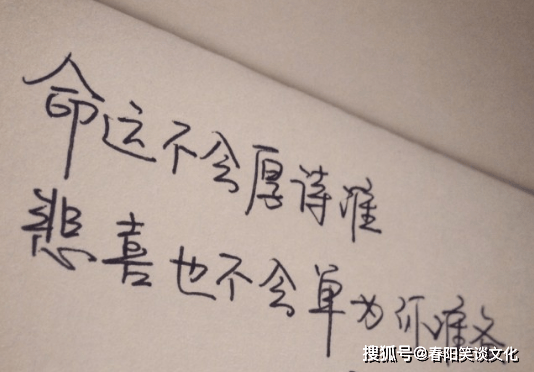 命运不会厚待谁
悲喜也不会单为你准备
搜狐号@春阳笑谈文化